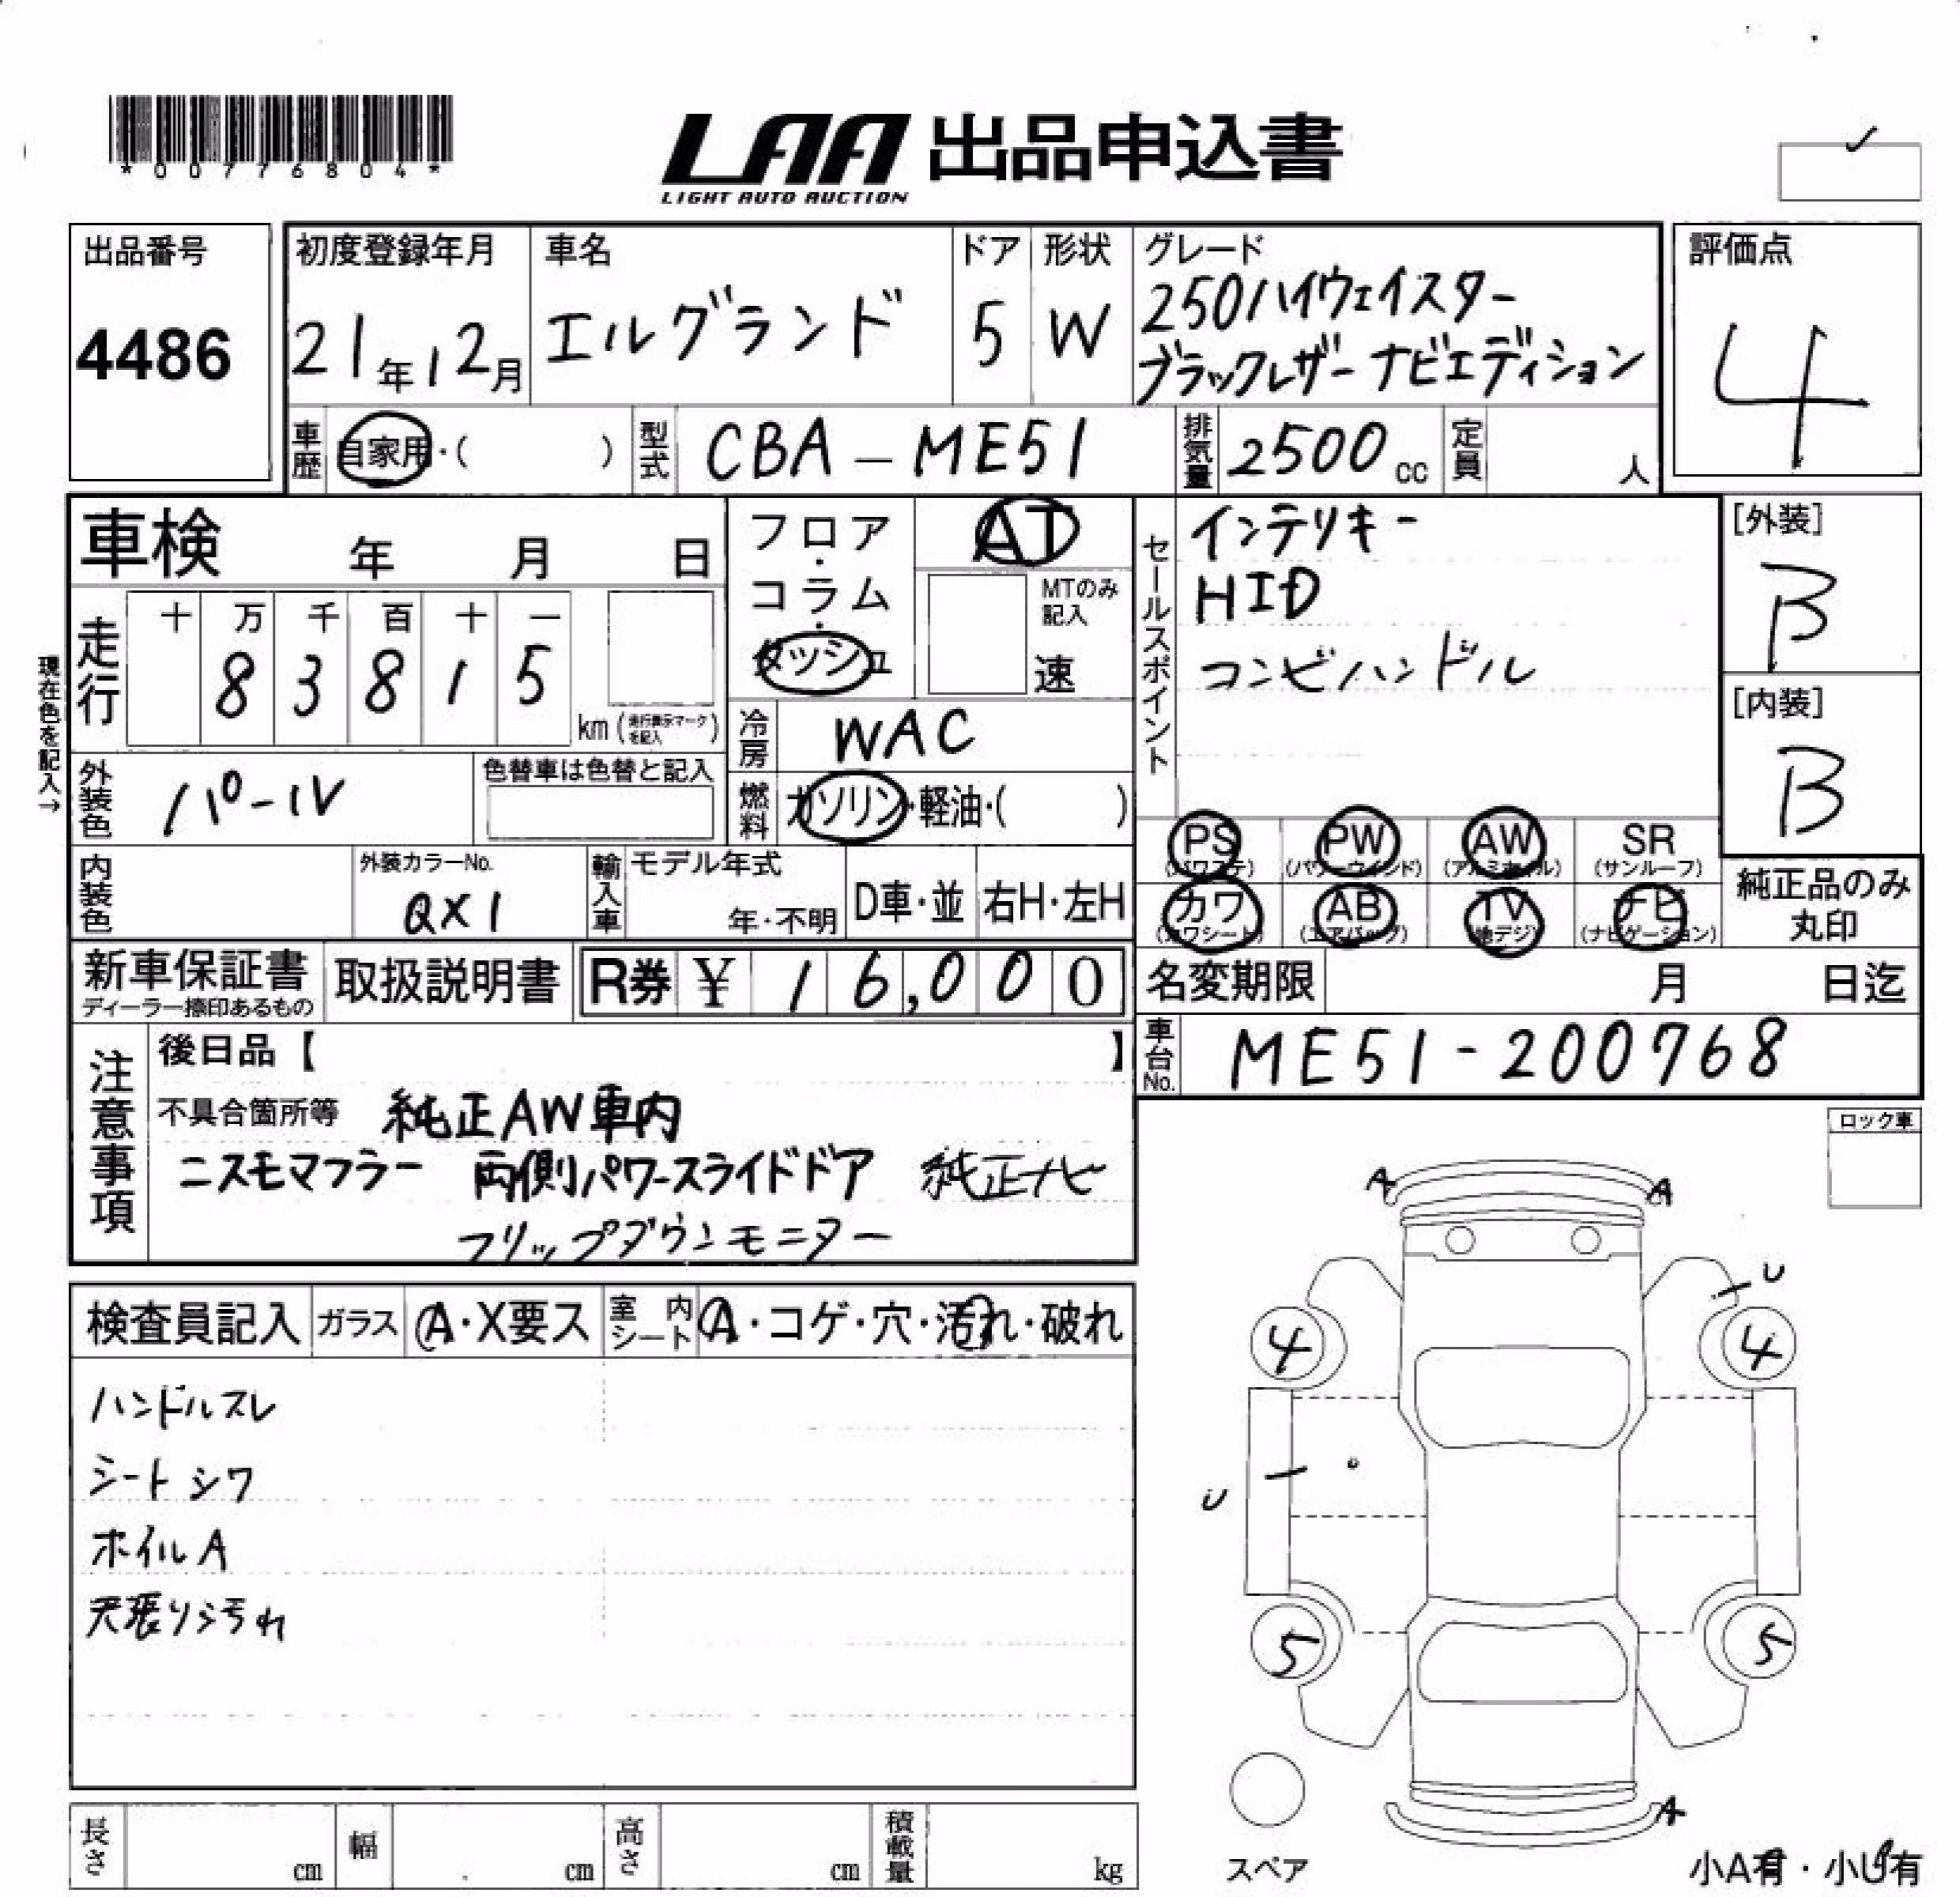 *00776804*
LAA 出品申込書
LIGHT AUTO AUCTION
出品番号
4486
初度登録年月
21年12月
車名
エルグランド
ドア
5
形状
W
グレード
250ハイウェイスター
ブラックレザーナビエディション
評価点
4
車歴
自家用・( )
型式
CBA-ME51
排気量
2500cc
定員
人
車検 年 月 日
フロア・コラム・ダッシュ
AT
MTのみ記入
速
セールスポイント
インテリキー
HID
コンビハンドル
[外装]
B
[内装]
B
現在色を記入→
走行
十 万 千 百 十 一
8 3 8 1 5
km (走行表示マークを記入)
冷房
WAC
外装色
パール
色替車は色替と記入
燃料
ガソリン・軽油・( )
PS
(パワステ)
PW
(パワーウィンド)
AW
(アルミホイル)
SR
(サンルーフ)
カワ
(カワシート)
AB
(エアバッグ)
TV
(地デジ)
ナビ
(ナビゲーション)
純正品のみ
丸印
内装色
外装カラーNo.
QX1
輸入車
モデル年式
年・不明
D車・並
右H・左H
新車保証書
ディーラー捺印あるもの
取扱説明書
R券 ¥ 16,000
名変期限 月 日迄
車台No.
ME51-200768
注意事項
後日品【 】
不具合箇所等 純正AW車内
ニスモマフラー 両側パワースライドドア 純正ナビ
フリップダウンモニター
ロック車
A A
U
4 4
U
5 5
A
検査員記入
ガラス
A・X要ス
室内シート
A・コゲ・穴・汚れ・破れ
ハンドルスレ
シートシワ
ホイルA
天張り汚れ
長さ cm
幅 cm
高さ cm
積載量 kg
スペア
小A有・小U有